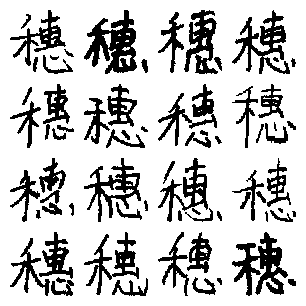 穗穗穗穗
穗穗穗穗
穗穗穗穗
穗穗穗穗